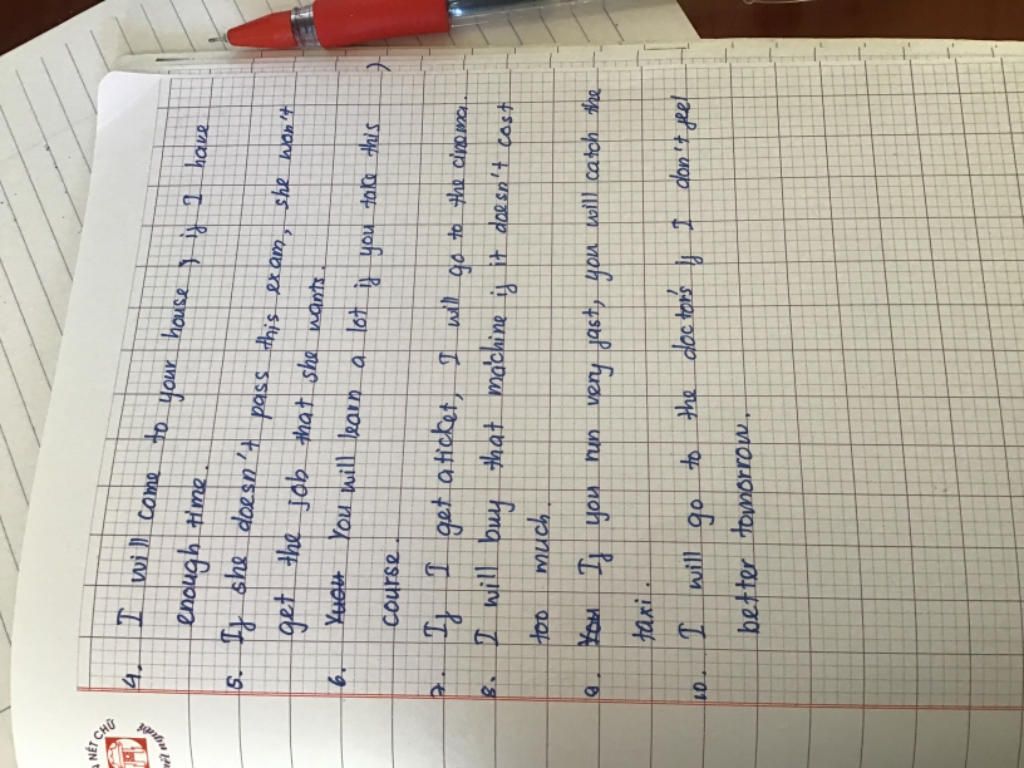 4. I will come to your house, if I have
enough time.
5. If she doesn't pass this exam, she won't
get the job that she wants.
6. You will learn a lot if you take this
course.
7. If I get a ticket, I will go to the cinema.
8. I will buy that machine if it doesn't cost
too much.
9. If you run very fast, you will catch the
taxi.
10. I will go to the doctor's if I don't feel
better tomorrow.
NÉT CHỮ